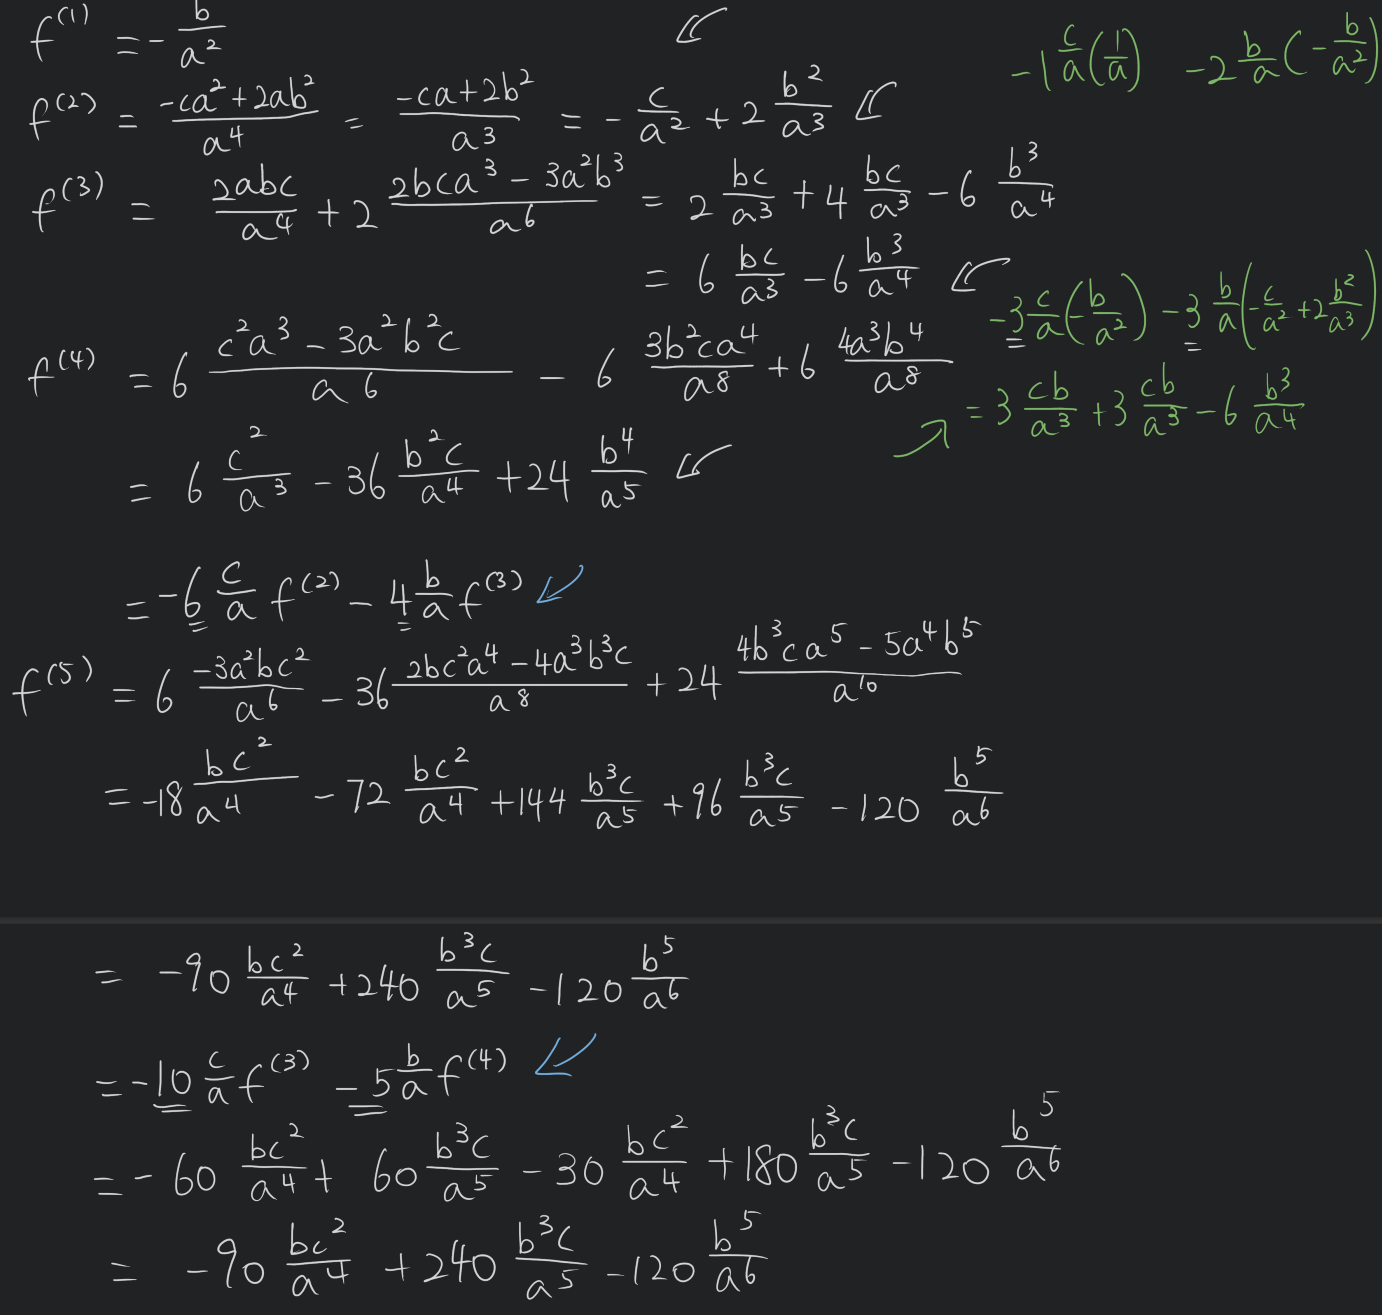 f^(1) = - b/a^2
-1 c/a (1/a) -2 b/a (- b/a^2)
f^(2) = (-ca^2 + 2ab^2)/a^4 = (-ca + 2b^2)/a^3 = - c/a^2 + 2 b^2/a^3
f^(3) = 2abc/a^4 + 2 (2bca^3 - 3a^2b^3)/a^6 = 2 bc/a^3 + 4 bc/a^3 - 6 b^3/a^4
= 6 bc/a^3 - 6 b^3/a^4
-3 c/a (- b/a^2) -3 b/a (- c/a^2 + 2 b^2/a^3)
= 3 cb/a^3 + 3 cb/a^3 - 6 b^3/a^4
f^(4) = 6 (c^2a^3 - 3a^2b^2c)/a^6 - 6 3b^2ca^4/a^8 + 6 4a^3b^4/a^8
= 6 c^2/a^3 - 36 b^2c/a^4 + 24 b^4/a^5
= -6 c/a f^(2) - 4 b/a f^(3)
f^(5) = 6 (-3a^2bc^2)/a^6 - 36 (2bc^2a^4 - 4a^3b^3c)/a^8 + 24 (4b^3ca^5 - 5a^4b^5)/a^10
= -18 bc^2/a^4 - 72 bc^2/a^4 + 144 b^3c/a^5 + 96 b^3c/a^5 - 120 b^5/a^6
= -90 bc^2/a^4 + 240 b^3c/a^5 - 120 b^5/a^6
= -10 c/a f^(3) - 5 b/a f^(4)
= - 60 bc^2/a^4 + 60 b^3c/a^5 - 30 bc^2/a^4 + 180 b^3c/a^5 - 120 b^5/a^6
= -90 bc^2/a^4 + 240 b^3c/a^5 - 120 b^5/a^6